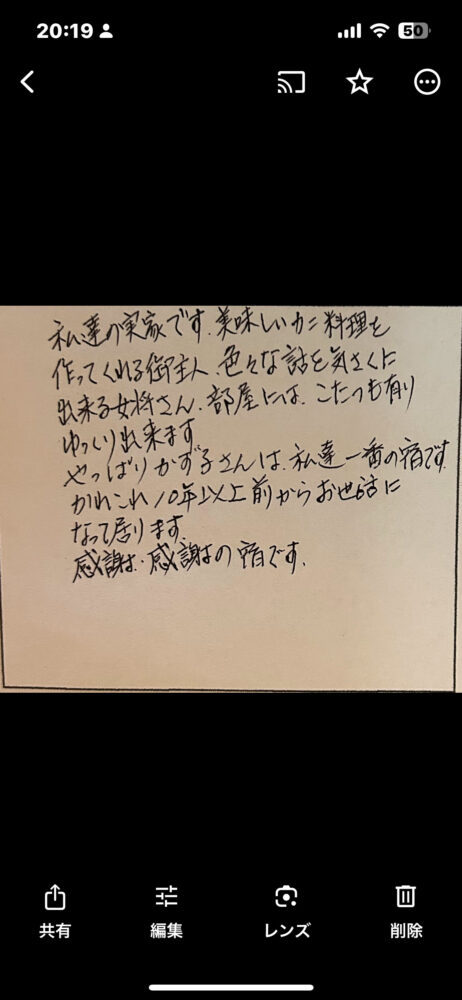 20:19
50
私達の実家です.美味しいカニ料理を
作ってくれる御主人、色々な話を気さくに
出来る女将さん、部屋には、こたつも有り
ゆっくり出来ます
やっぱりかず子さんは、私達一番の宿です
かれこれ10年以上前からお世話に
なって居ります.
感謝・感謝の宿です.
共有
編集
レンズ
削除